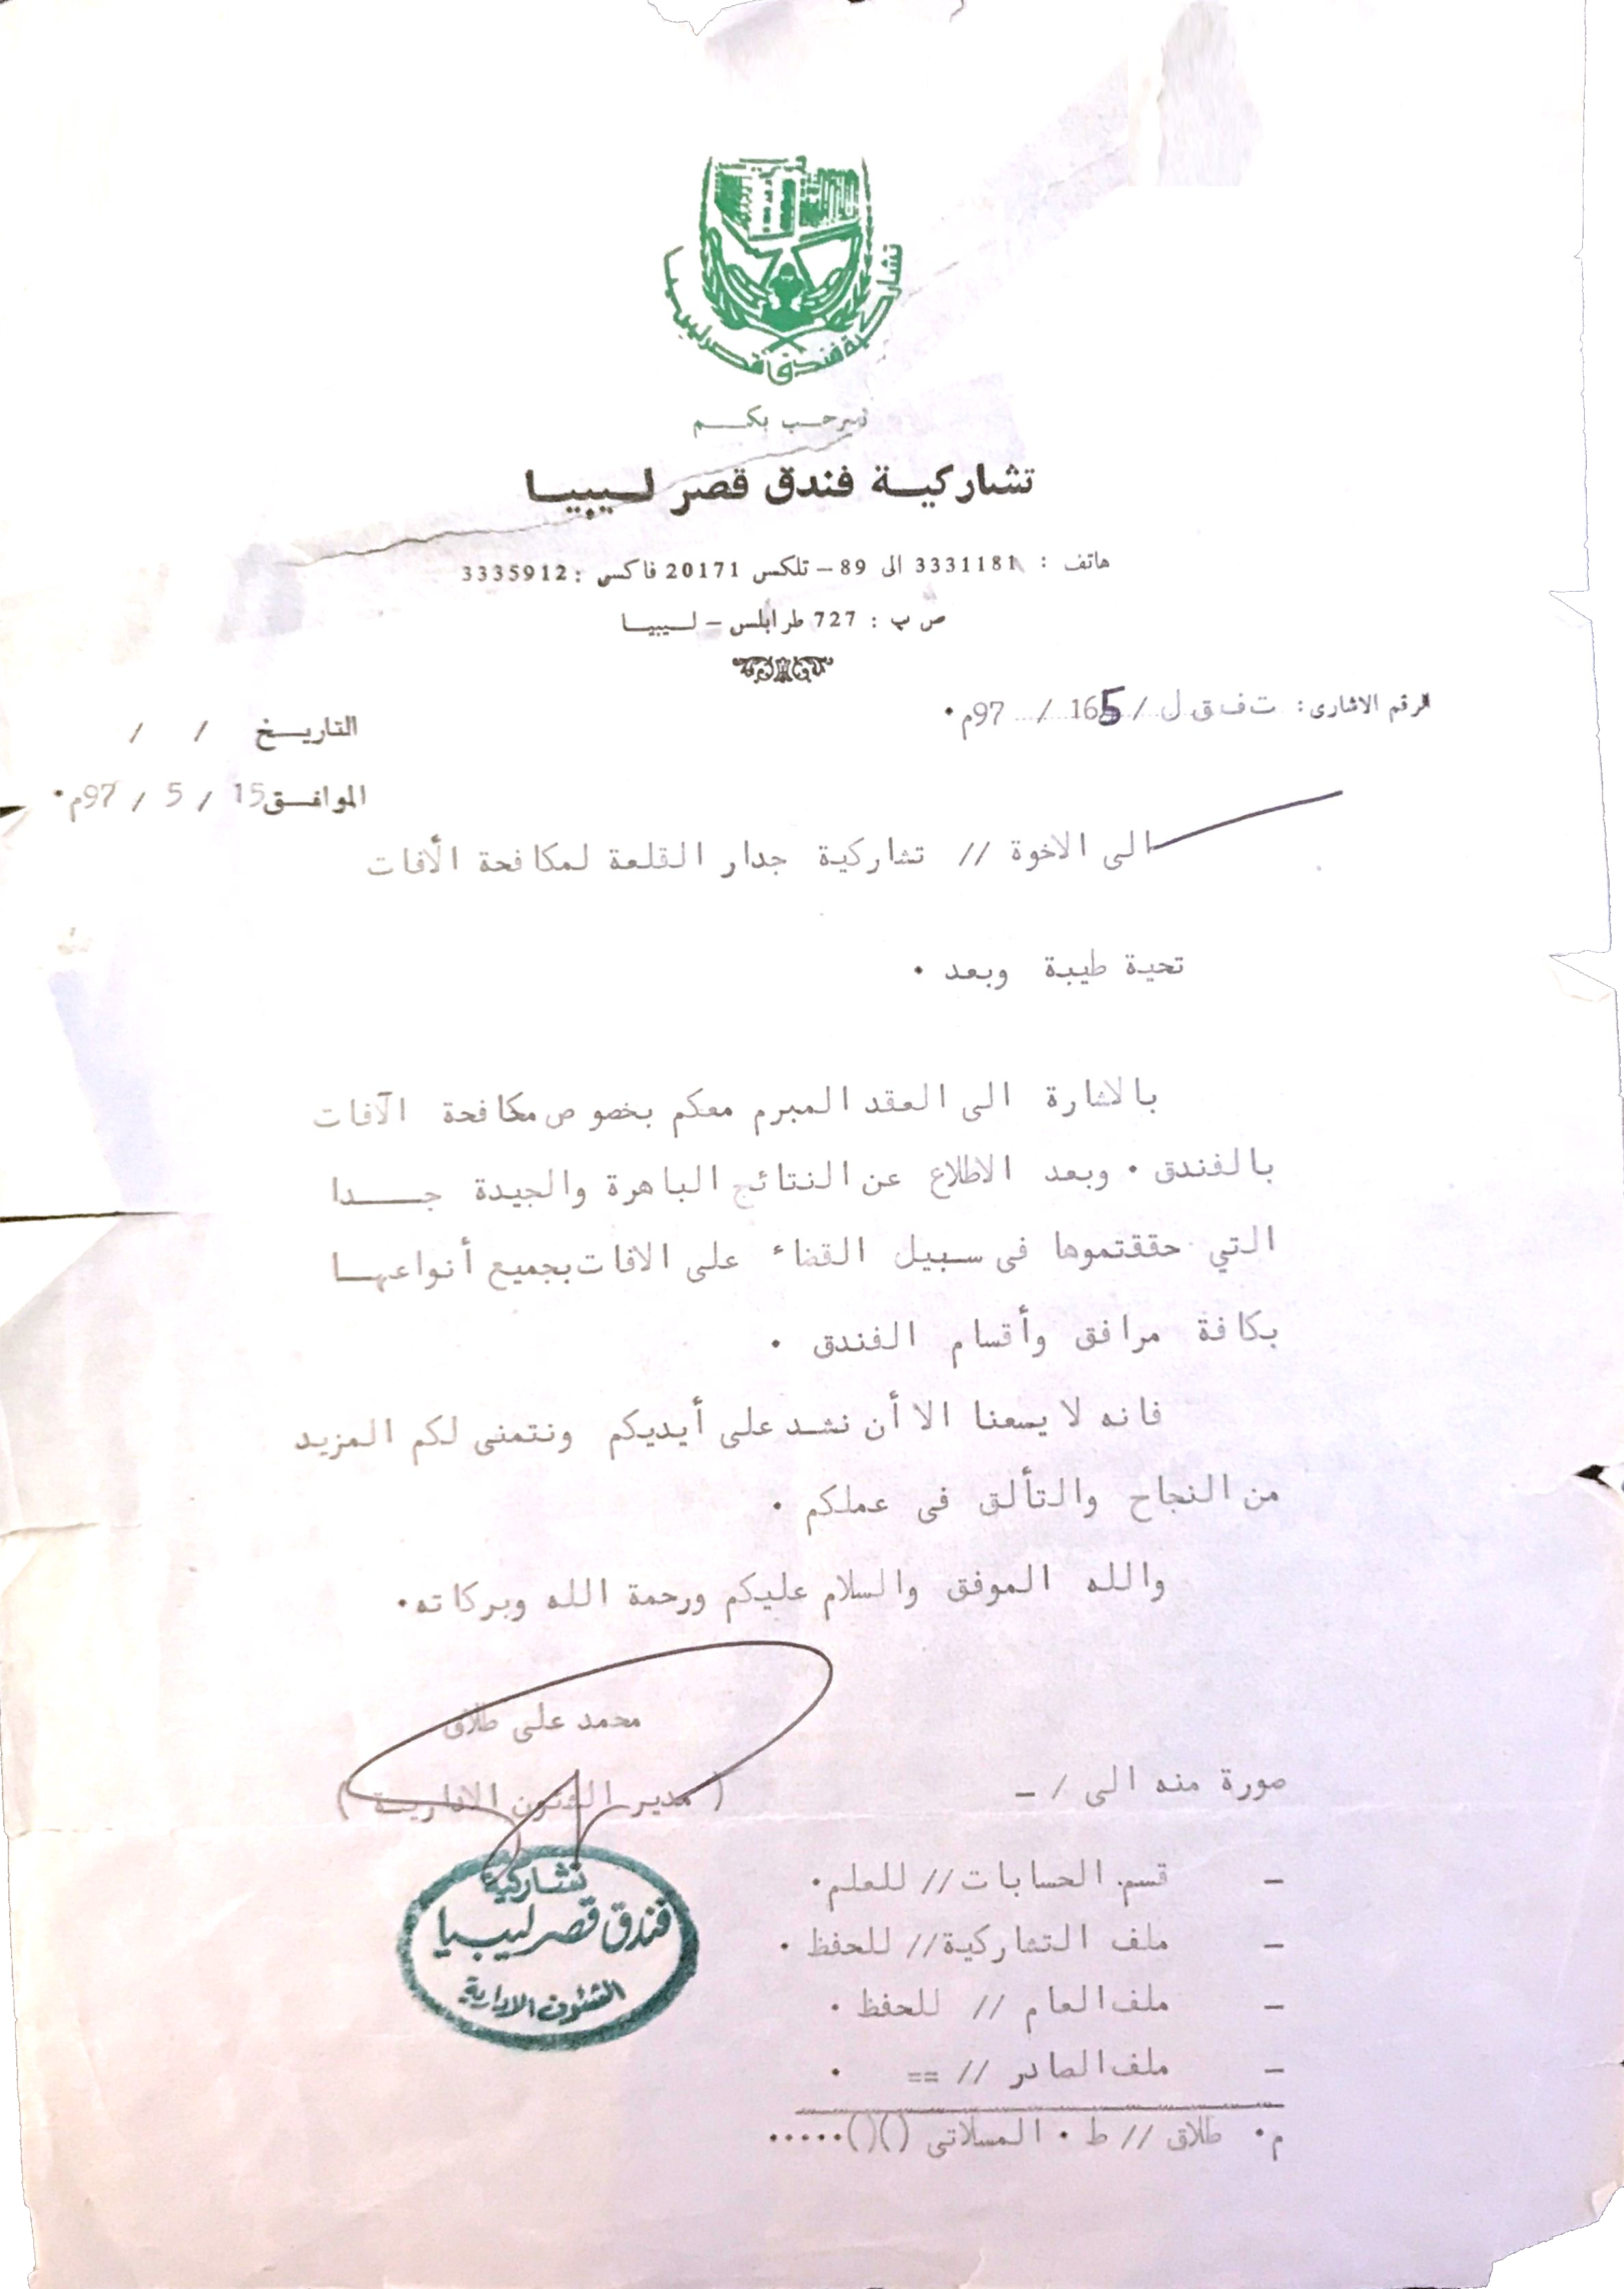 تشاركية فندق قصر ليبيا
نرحب بكم
تشاركية فندق قصر ليبيا
هاتف : 3331181 الى 89 – تلكس 20171 فاكس : 3335912
ص ب : 727 طرابلس – ليبيا
الرقم الاشارى : ت ف ق ل / 165 / 97م .
التاريخ / /
الموافق 15 / 5 / 97م .
الى الاخوة // تشاركية جدار القلعة لمكافحة الآفات
تحية طيبة وبعد .
بالاشارة الى العقد المبرم معكم بخصوص مكافحة الآفات
بالفندق . وبعد الاطلاع عن النتائج الباهرة والجيدة جدا
التي حققتموها فى سبيل القضاء على الافات بجميع أنواعها
بكافة مرافق وأقسام الفندق .
فانه لا يسعنا الا أن نشد على أيديكم ونتمنى لكم المزيد
من النجاح والتألق فى عملكم .
والله الموفق والسلام عليكم ورحمة الله وبركاته .
محمد على طلاق
( مدير الشئون الادارية )
تشاركية
فندق قصر ليبيا
الشئون الادارية
صورة منه الى / –
– قسم الحسابات // للعلم .
– ملف التشاركية // للحفظ .
– ملف العام // للحفظ .
– ملف الصادر // == .
م . طلاق // ط . المسلاتى ()() .....